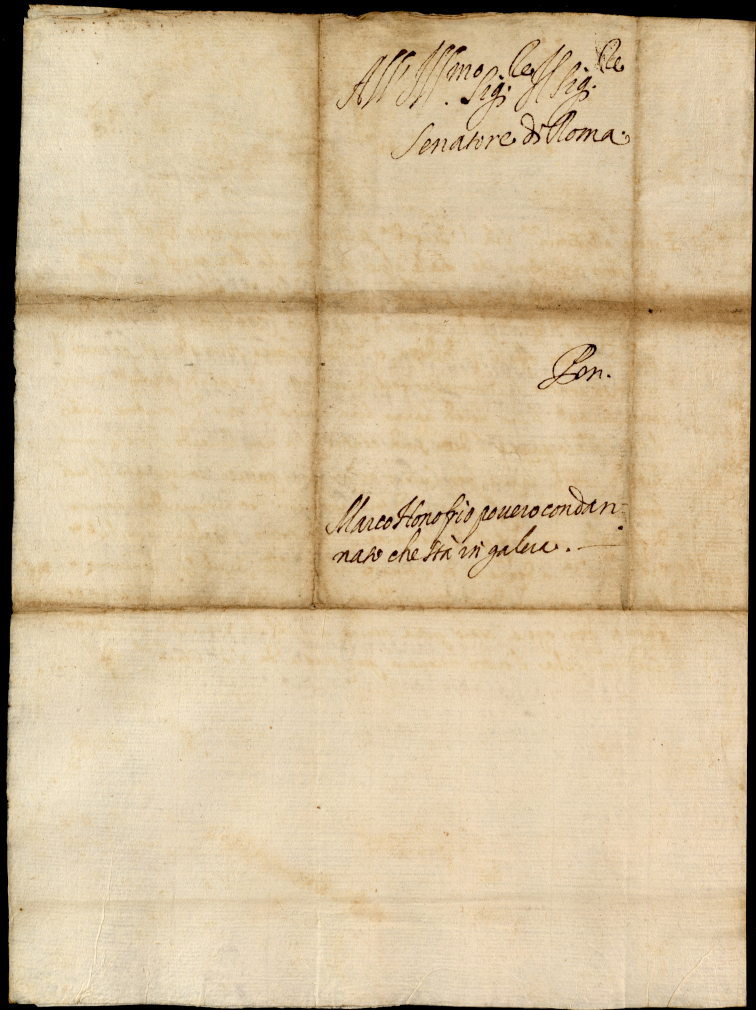 All' Ill.mo Sig.re Il Sig.re
Senatore di Roma.
Per.
Marco Honofrio povero condan-
nato che stà in galera.